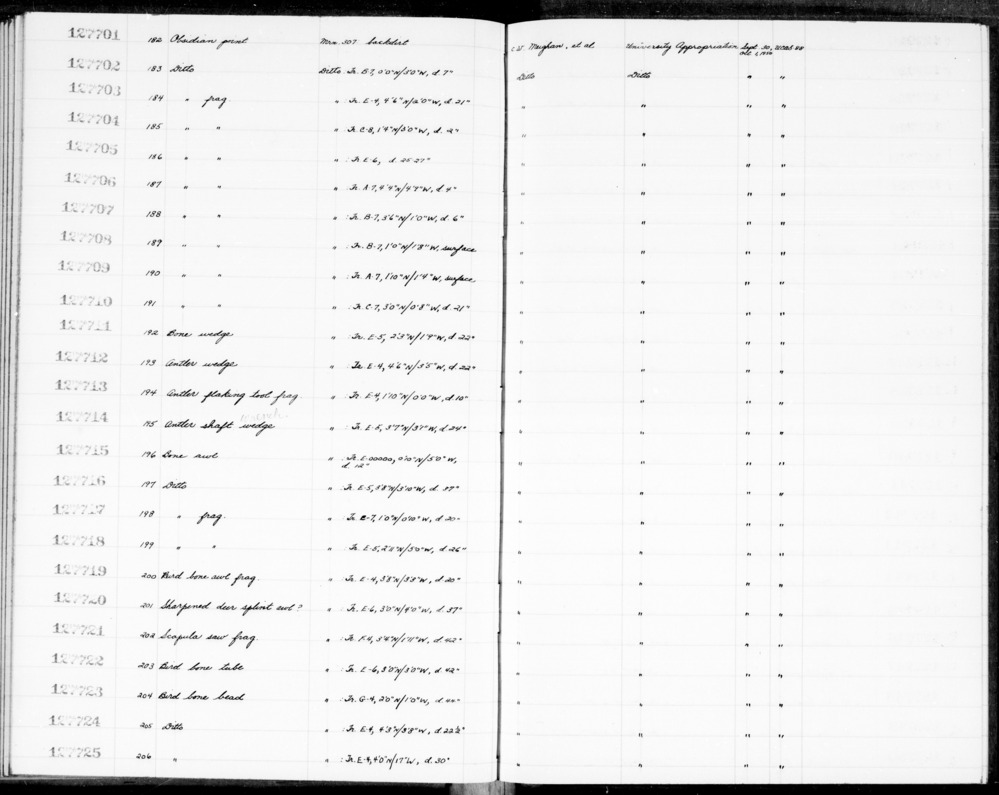 127701 182 Obsidian point Mrn. 307 backdirt C.W. Meighan, et al. University Appropriation Sept. 30, UCAS
Oct. 1, 1950
127702 183 Ditto Ditto: Tr. B-7, 0'0"N/5'0"W, d. 7" Ditto Ditto " "
127703 184 " frag. " : Tr. E-4, 4'6"N/2'0"W, d. 21" " " " "
127704 185 " " " : Tr. C-8, 1'4"N/3'0"W, d. 2" " " " "
127705 186 " " " : Tr. E-6, d. 25-27" " " " "
127706 187 " " " : Tr. A-7, 4'4"N/4'9"W, d. 4" " " " "
127707 188 " " " : Tr. B-7, 3'6"N/1'0"W, d. 6" " " " "
127708 189 " " " : Tr. B-7, 1'0"N/1'8"W, surface " " " "
127709 190 " " " : Tr. A-7, 1'10"N/1'4"W, surface " " " "
127710 191 " " " : Tr. C-7, 5'0"N/0'8"W, d. 21" " " " "
127711 192 Bone wedge " : Tr. E-5, 2'3"N/1'9"W, d. 22" " " " "
127712 193 Antler wedge " : Tr. E-4, 4'6"N/3'5"W, d. 22" " " " "
127713 194 Antler flaking tool frag. " : Tr. E-4, 1'10"N/0'0"W, d. 10" " " " "
127714 195 Antler shaft wedge " : Tr. E-5, 3'7"N/3'7"W, d. 24" " " " "
127715 196 Bone awl " : Tr. E-00000, 0'0"N/5'0"W, " " " "
d. 12"
127716 197 Ditto " : Tr. E-5, 5'8"N/3'10"W, d. 37" " " " "
127717 198 " frag. " : Tr. B-7, 1'0"N/0'10"W, d. 20" " " " "
127718 199 " " " : Tr. E-5, 2'11"N/5'0"W, d. 26" " " " "
127719 200 Bird bone awl frag. " : Tr. E-4, 3'8"N/3'8"W, d. 20" " " " "
127720 201 Sharpened deer splint awl? " : Tr. E-6, 3'0"N/4'0"W, d. 37" " " " "
127721 202 Scapula saw frag. " : Tr. F-4, 3'4"N/1'11"W, d. 42" " " " "
127722 203 Bird bone tube " : Tr. E-6, 3'0"N/3'0"W, d. 42" " " " "
127723 204 Bird bone bead " : Tr. G-4, 2'0"N/1'0"W, d. 44" " " " "
127724 205 Ditto " : Tr. E-4, 4'3"N/3'8"W, d. 22½" " " " "
127725 206 " " : Tr. E-4, 4'0"N/1'7"W, d. 30" " " " "